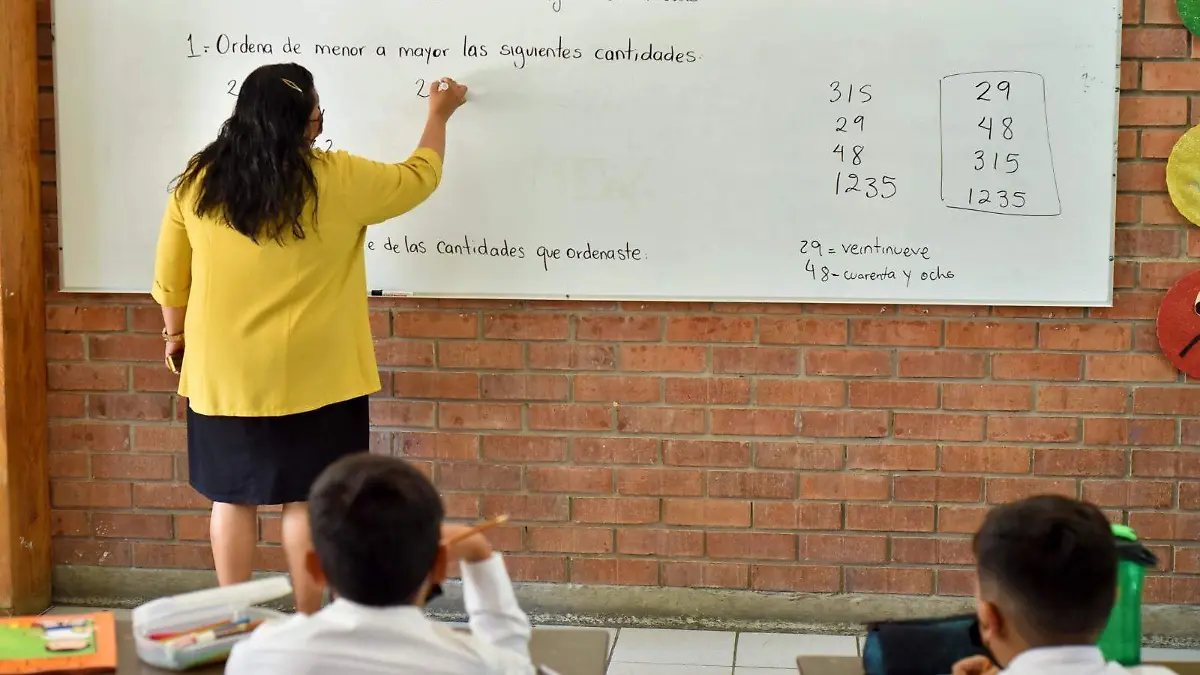 1= Ordena de menor a mayor las siguientes cantidades.
2 2
315 29
29 48
48 315
1235 1235
2
e de las cantidades que ordenaste:
29= veintinueve
48- cuarenta y ocho